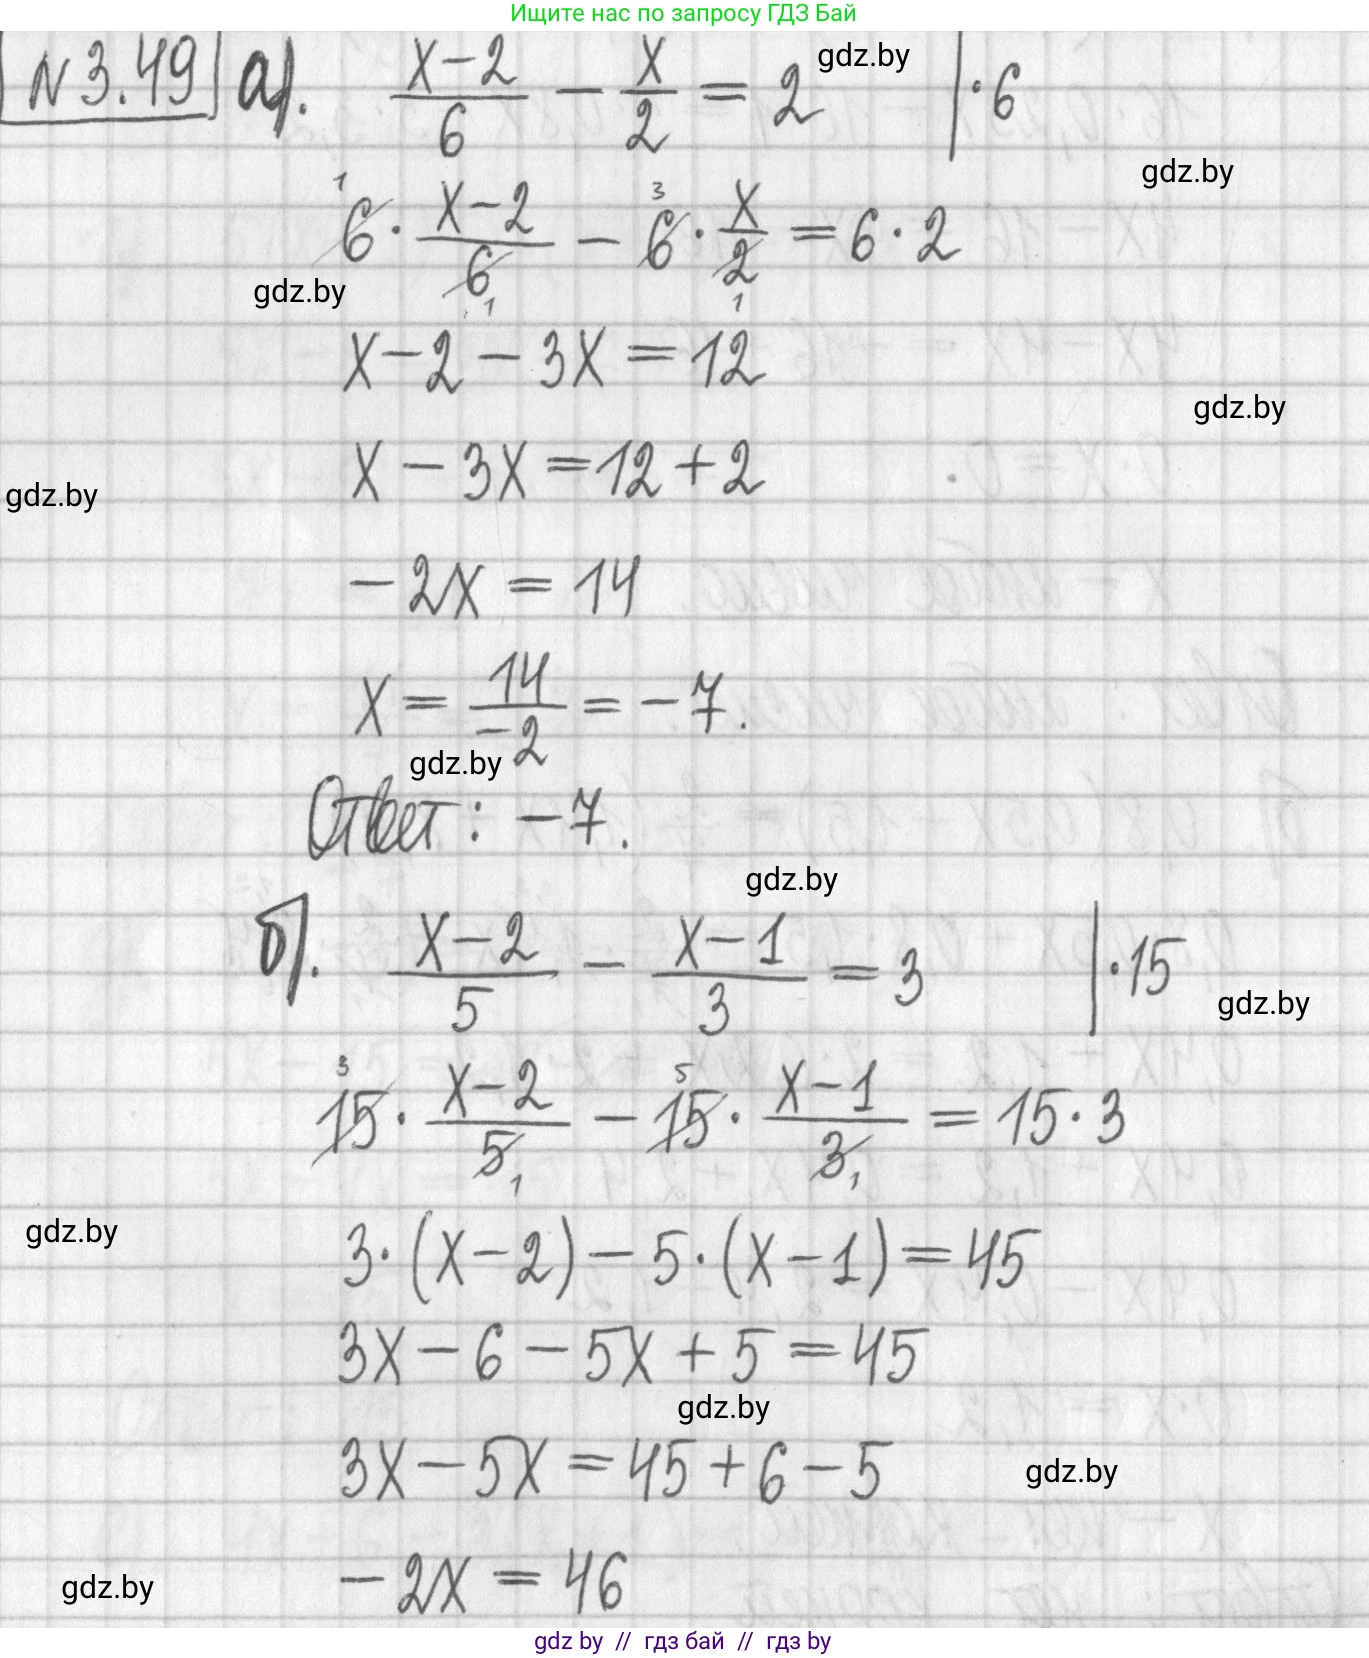 Ищите нас по запросу ГДЗ Бай
N3.49 а). (x-2)/6 - x/2 = 2 | ·6
gdz.by
gdz.by
6 · (x-2)/6 - 6 · x/2 = 6 · 2
1 3 1 1
gdz.by
x - 2 - 3x = 12
gdz.by
x - 3x = 12 + 2
gdz.by
-2x = 14
x = 14/-2 = -7.
gdz.by
Ответ: -7.
gdz.by
б). (x-2)/5 - (x-1)/3 = 3 | ·15
gdz.by
15 · (x-2)/5 - 15 · (x-1)/3 = 15 · 3
3 5 1 1
gdz.by
3 · (x-2) - 5 · (x-1) = 45
3x - 6 - 5x + 5 = 45
gdz.by
3x - 5x = 45 + 6 - 5
gdz.by
-2x = 46
gdz.by
gdz by // гдз бай // гдз by